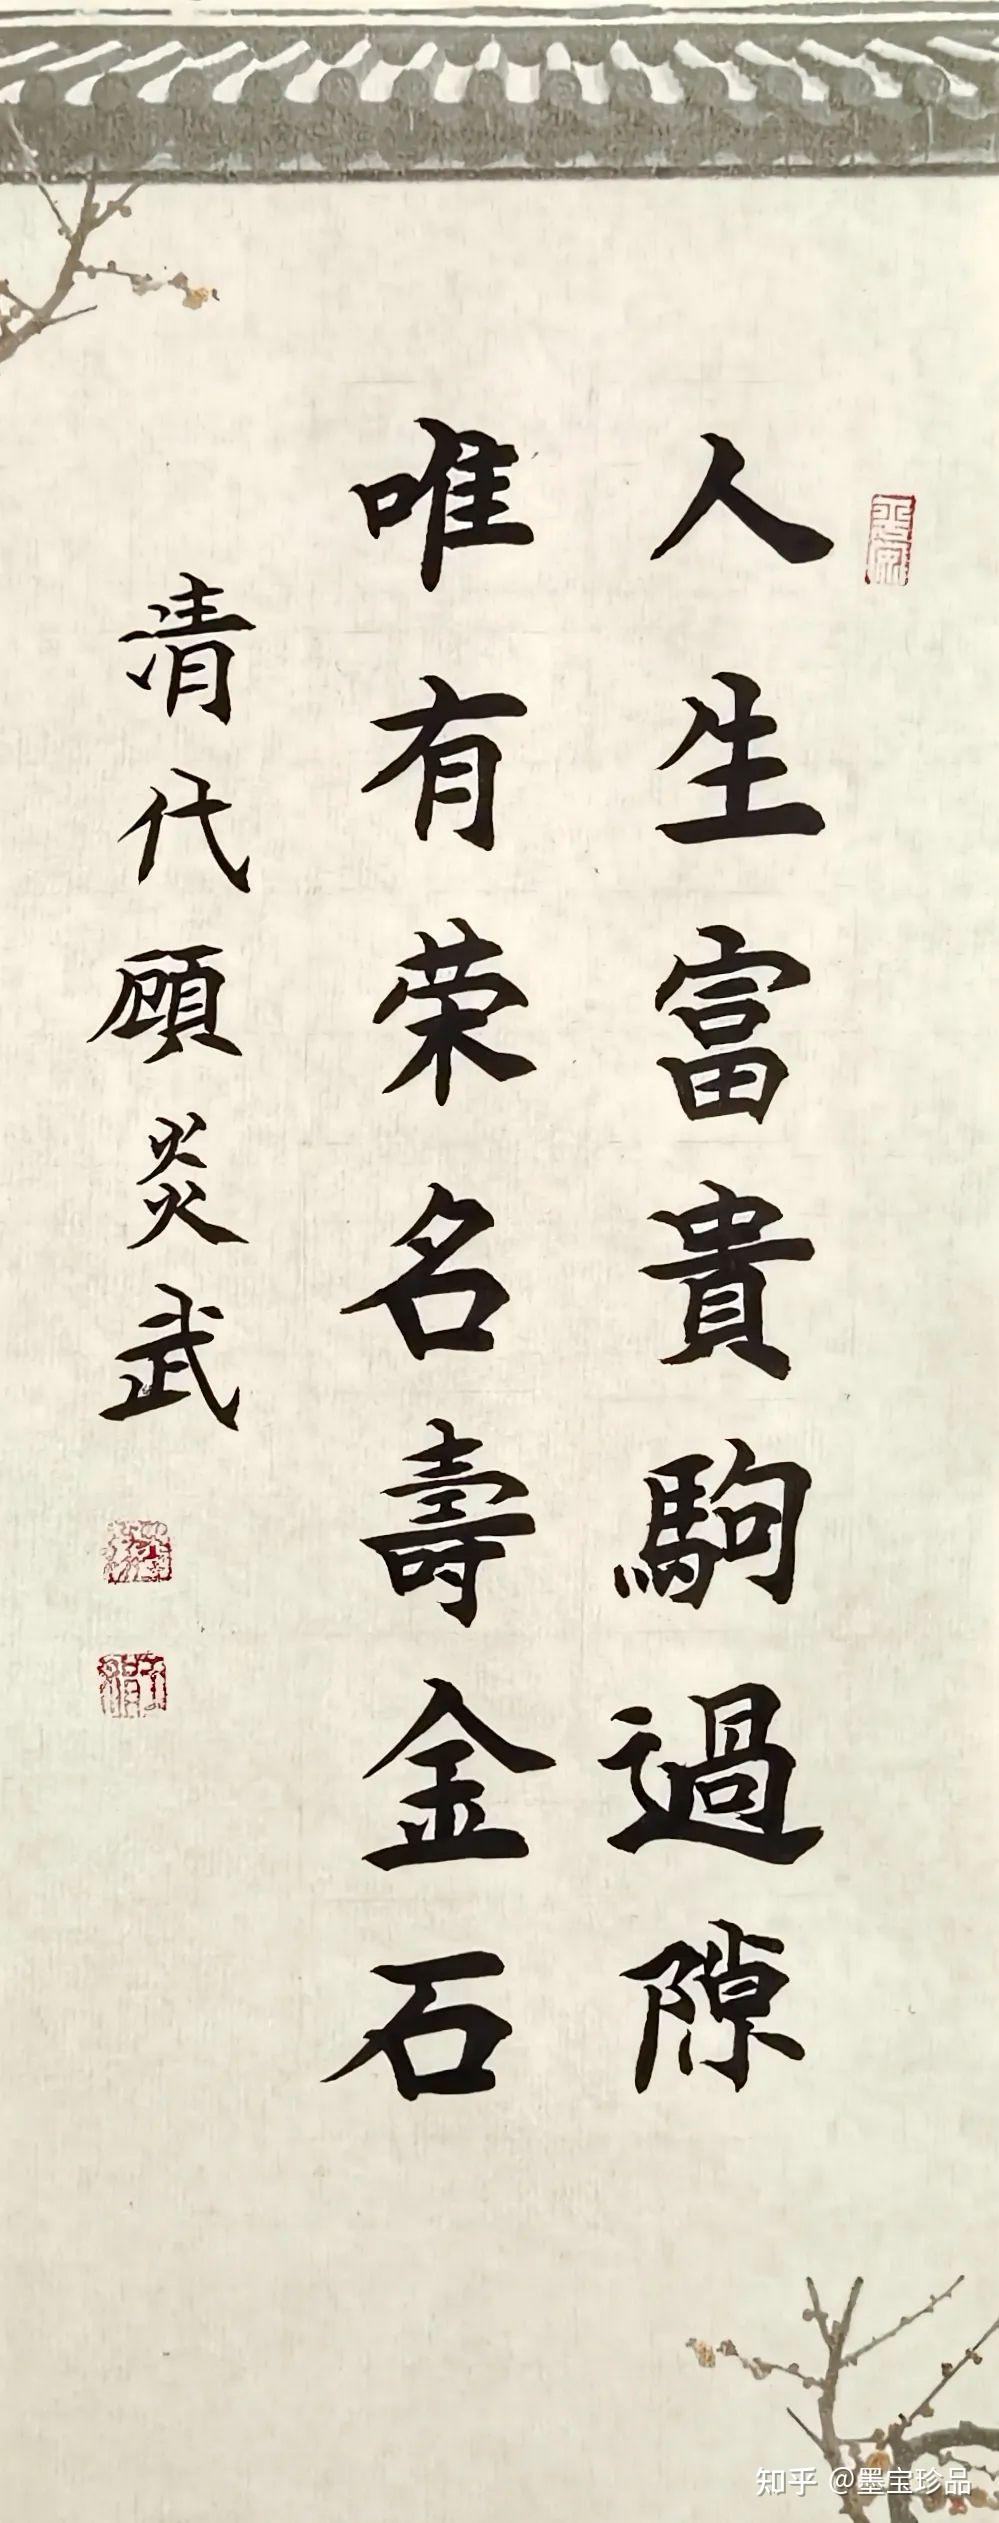 人生富貴駒過隙
唯有荣名壽金石
清代顾炎武
知乎 @墨宝珍品